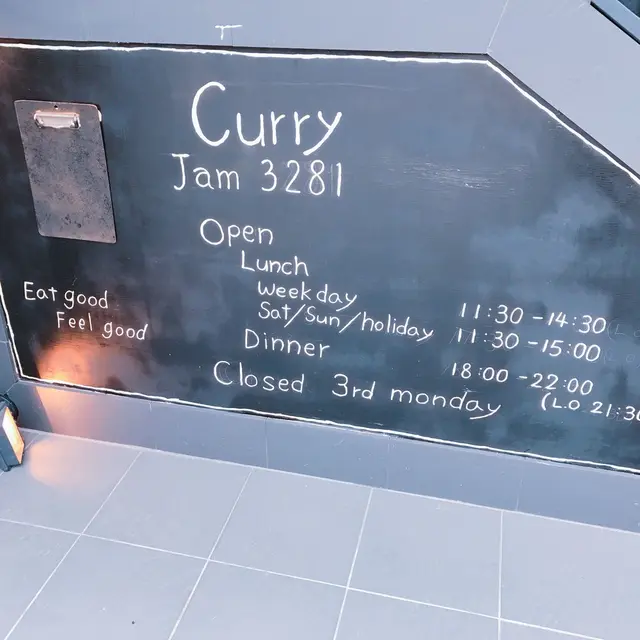 Curry
Jam 3281
Open
Lunch
weekday 11:30 - 14:30
Sat/Sun/holiday 11:30 - 15:00
Dinner 18:00 - 22:00
(L.O 21:30
Closed 3rd monday
Eat good
Feel good